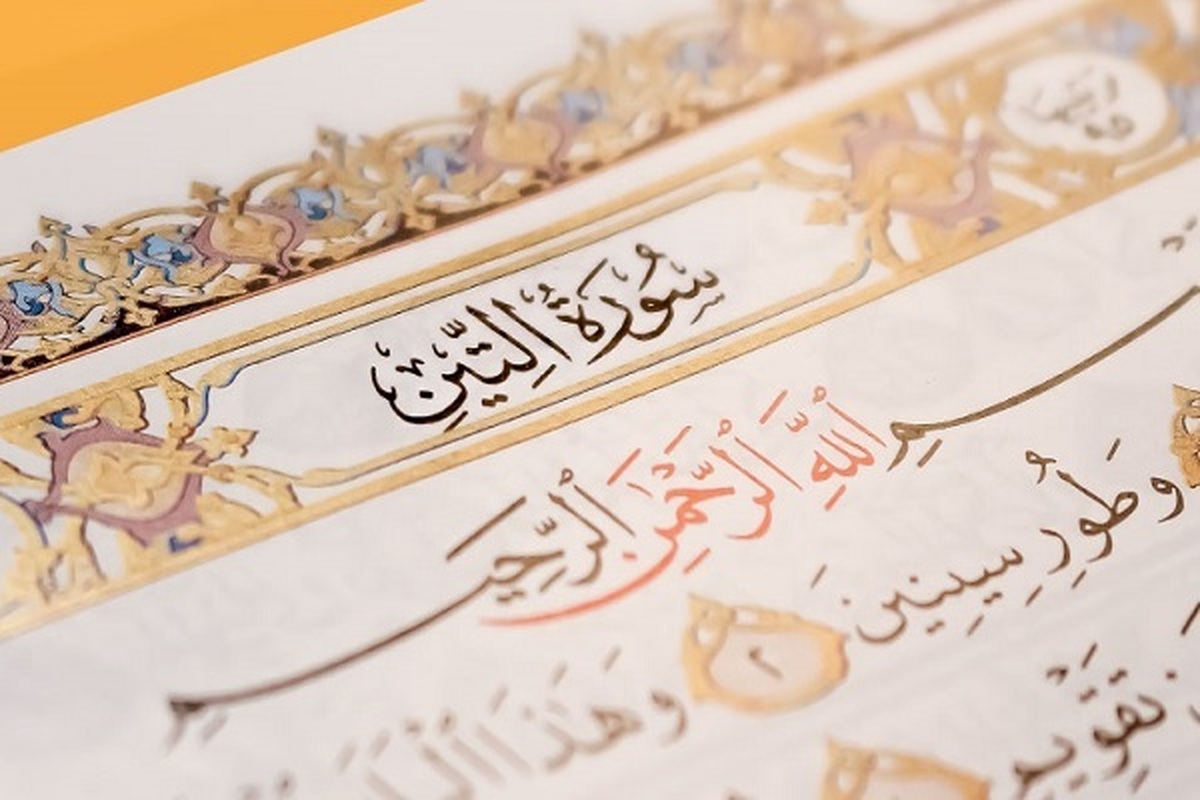 سُورَةُ اَلتّينِ
بِسْمِ اللهِ الرَّحْمٰنِ الرَّحيمِ
وَطُورِ سينينَ ٢ وَهٰذَا
تَقْويمٍ